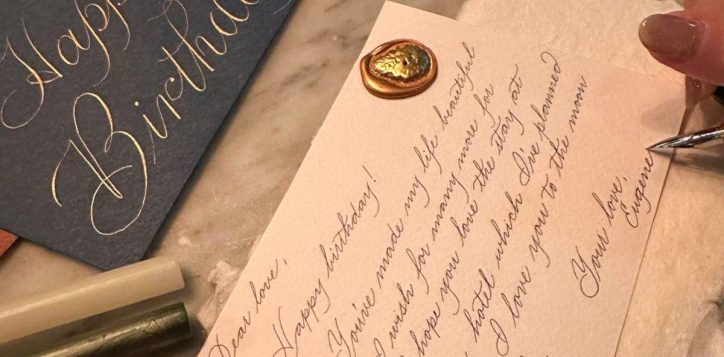 Happy
Birthday
Dear love,
Happy birthday!
You've made my life beautiful
I wish for many more for
hope you love the stay at
hotel which I've planned
I love you to the moon
Your love,
Eugene